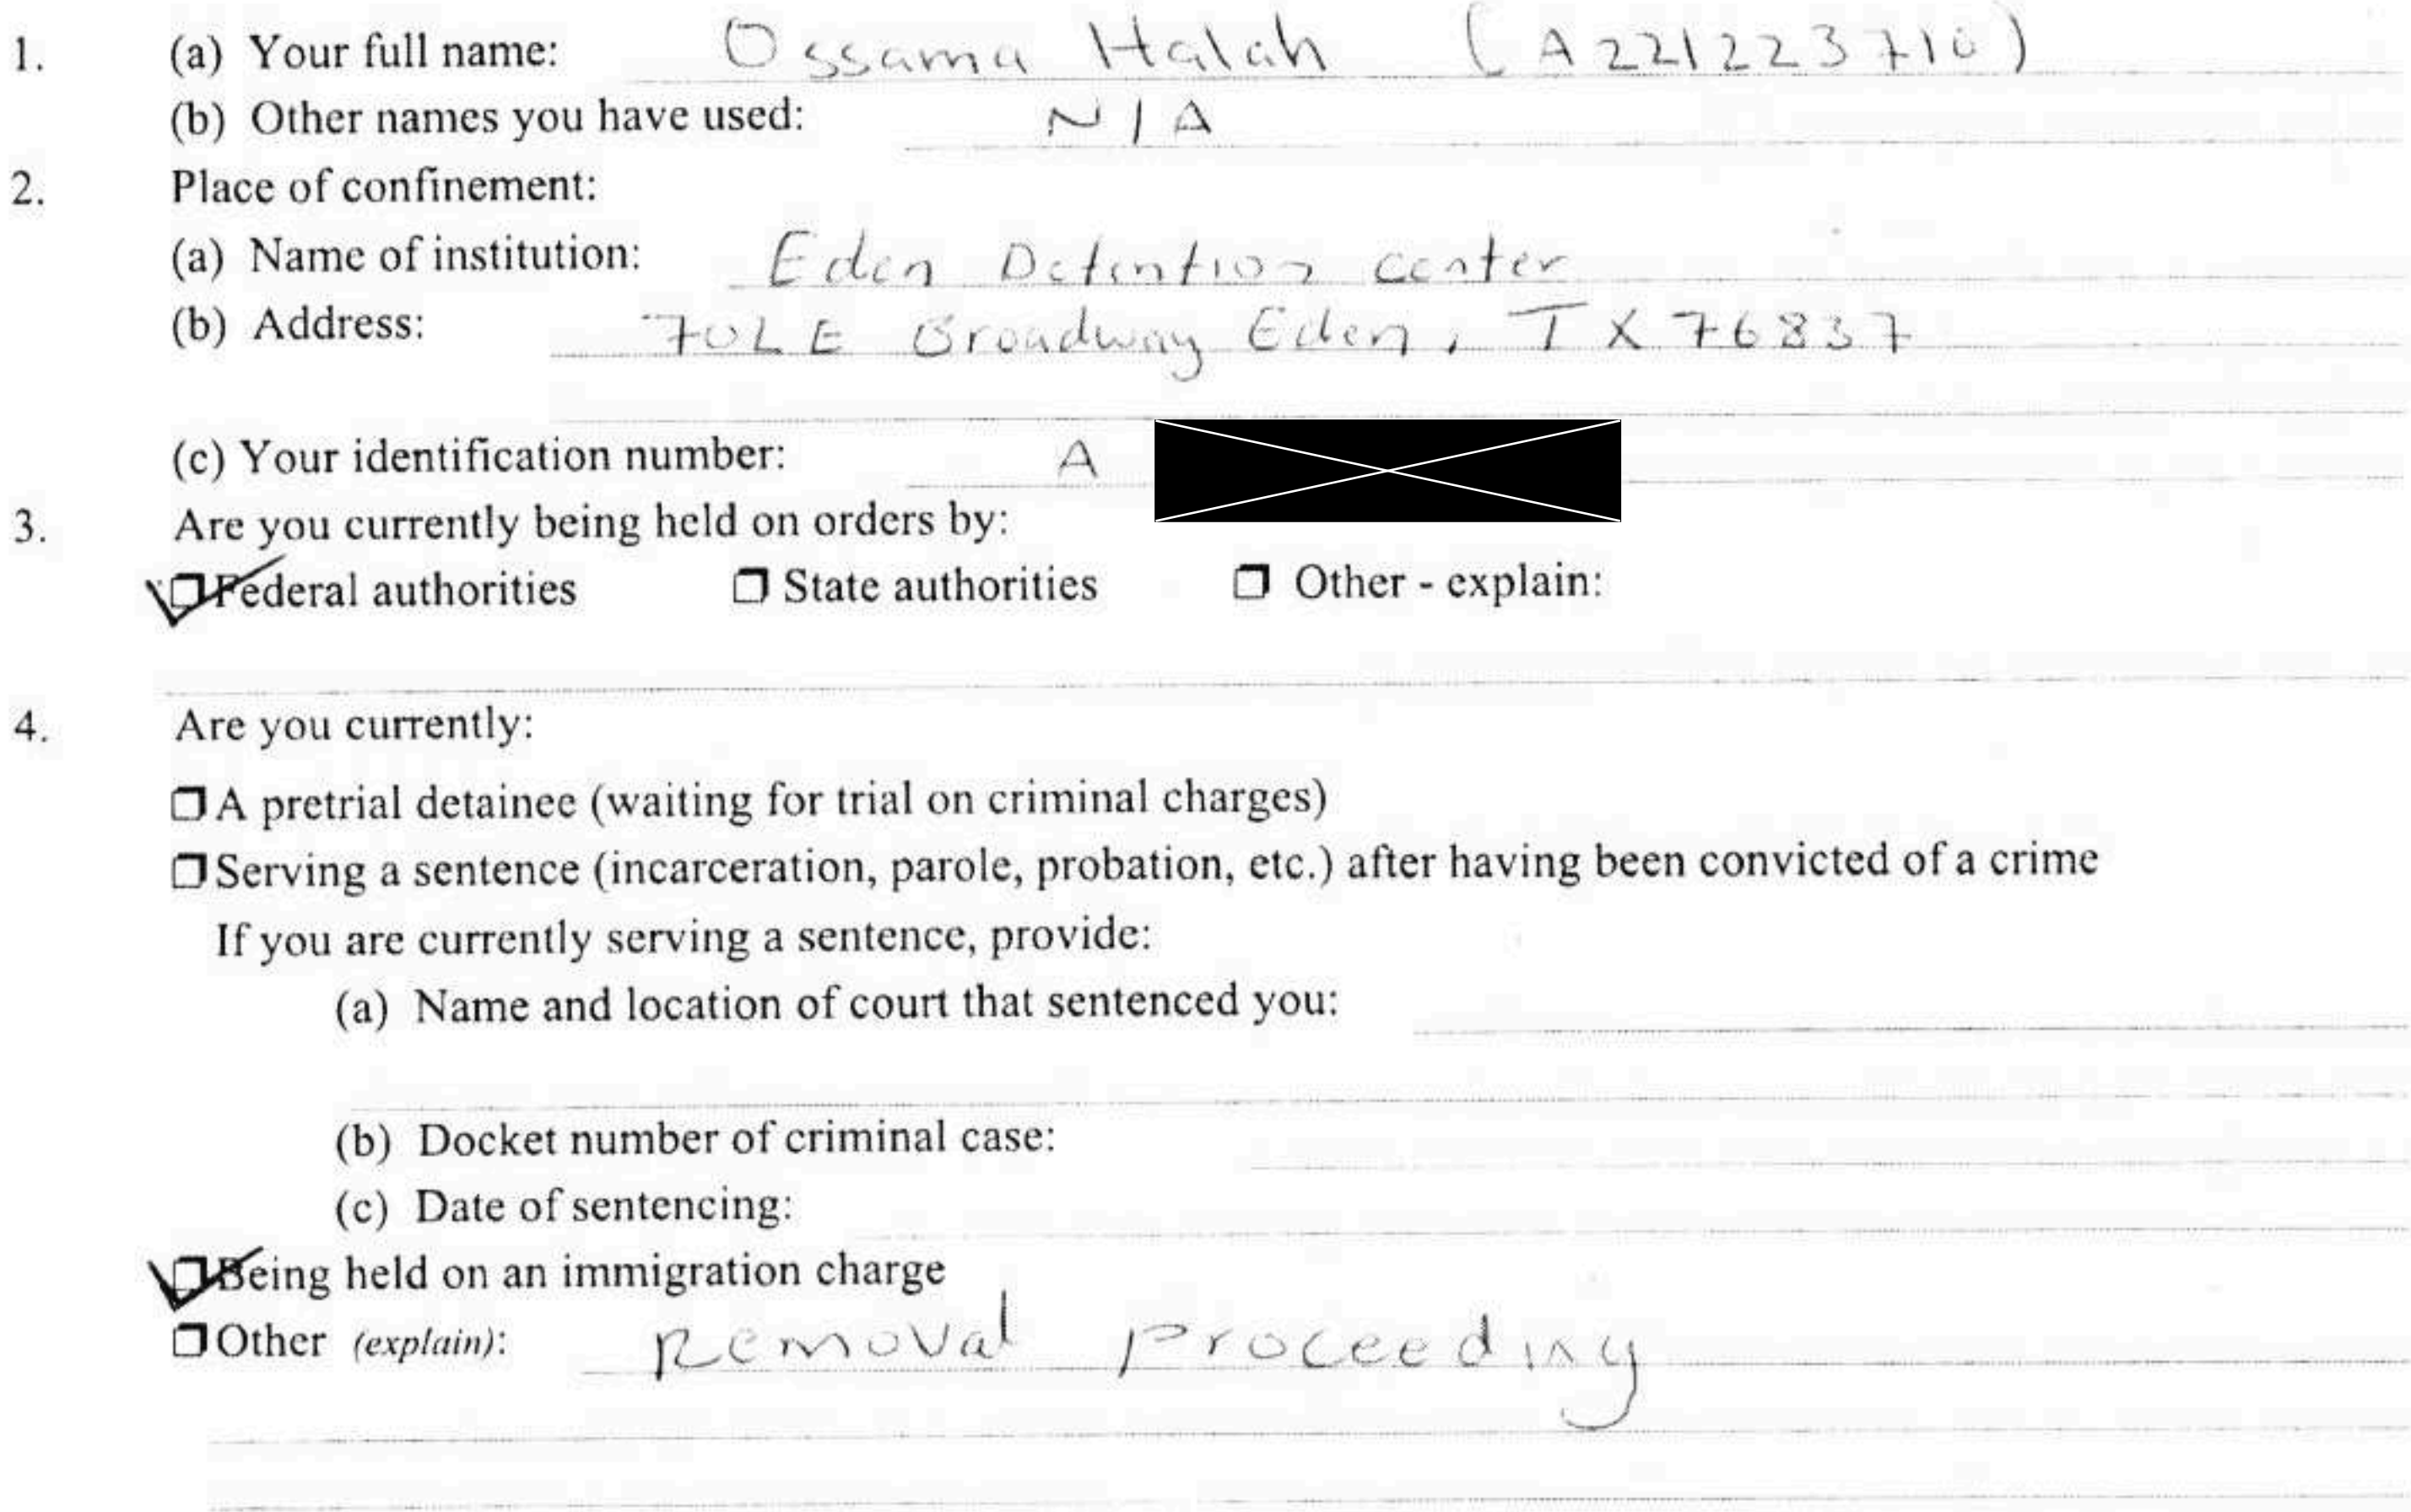 1. (a) Your full name: Ossama Halah (A221223710)
(b) Other names you have used: N/A
2. Place of confinement:
(a) Name of institution: Eden Detention center
(b) Address: 702 E Broadway Eden, TX 76837
(c) Your identification number: A
3. Are you currently being held on orders by:
Federal authorities State authorities Other - explain:
4. Are you currently:
A pretrial detainee (waiting for trial on criminal charges)
Serving a sentence (incarceration, parole, probation, etc.) after having been convicted of a crime
If you are currently serving a sentence, provide:
(a) Name and location of court that sentenced you:
(b) Docket number of criminal case:
(c) Date of sentencing:
Being held on an immigration charge
Other (explain): Removal proceeding